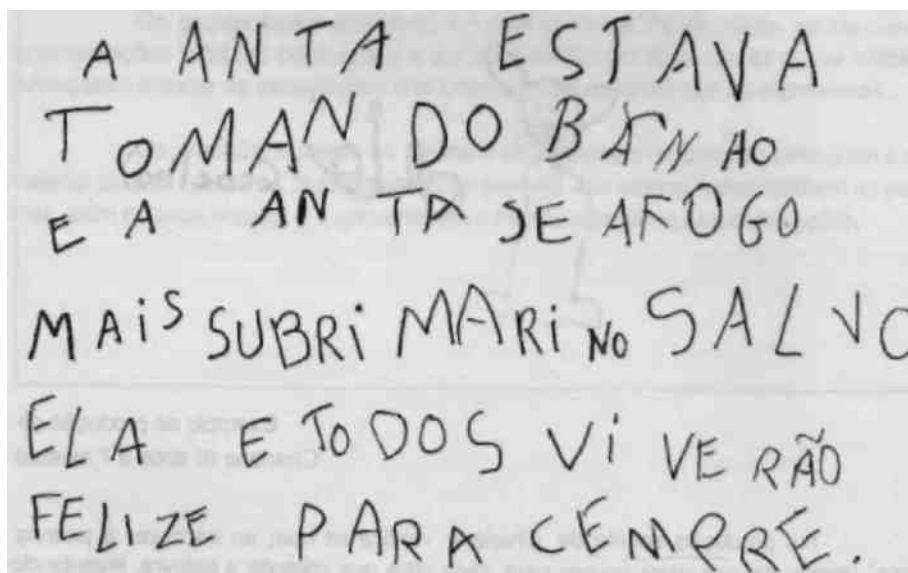 A ANTA ESTAVA
TOMANDO BANHO
E A ANTA SE AFOGO
MAIS SUBRIMARINO SALVO
ELA E TODOS VIVERÃO
FELIZE PARA CEMPRE.